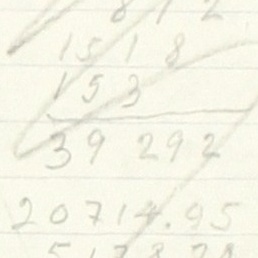 8 1 2
1 5 1 8
1 5 3
3 9 2 9 2
2 0 7 1 4 . 9 5